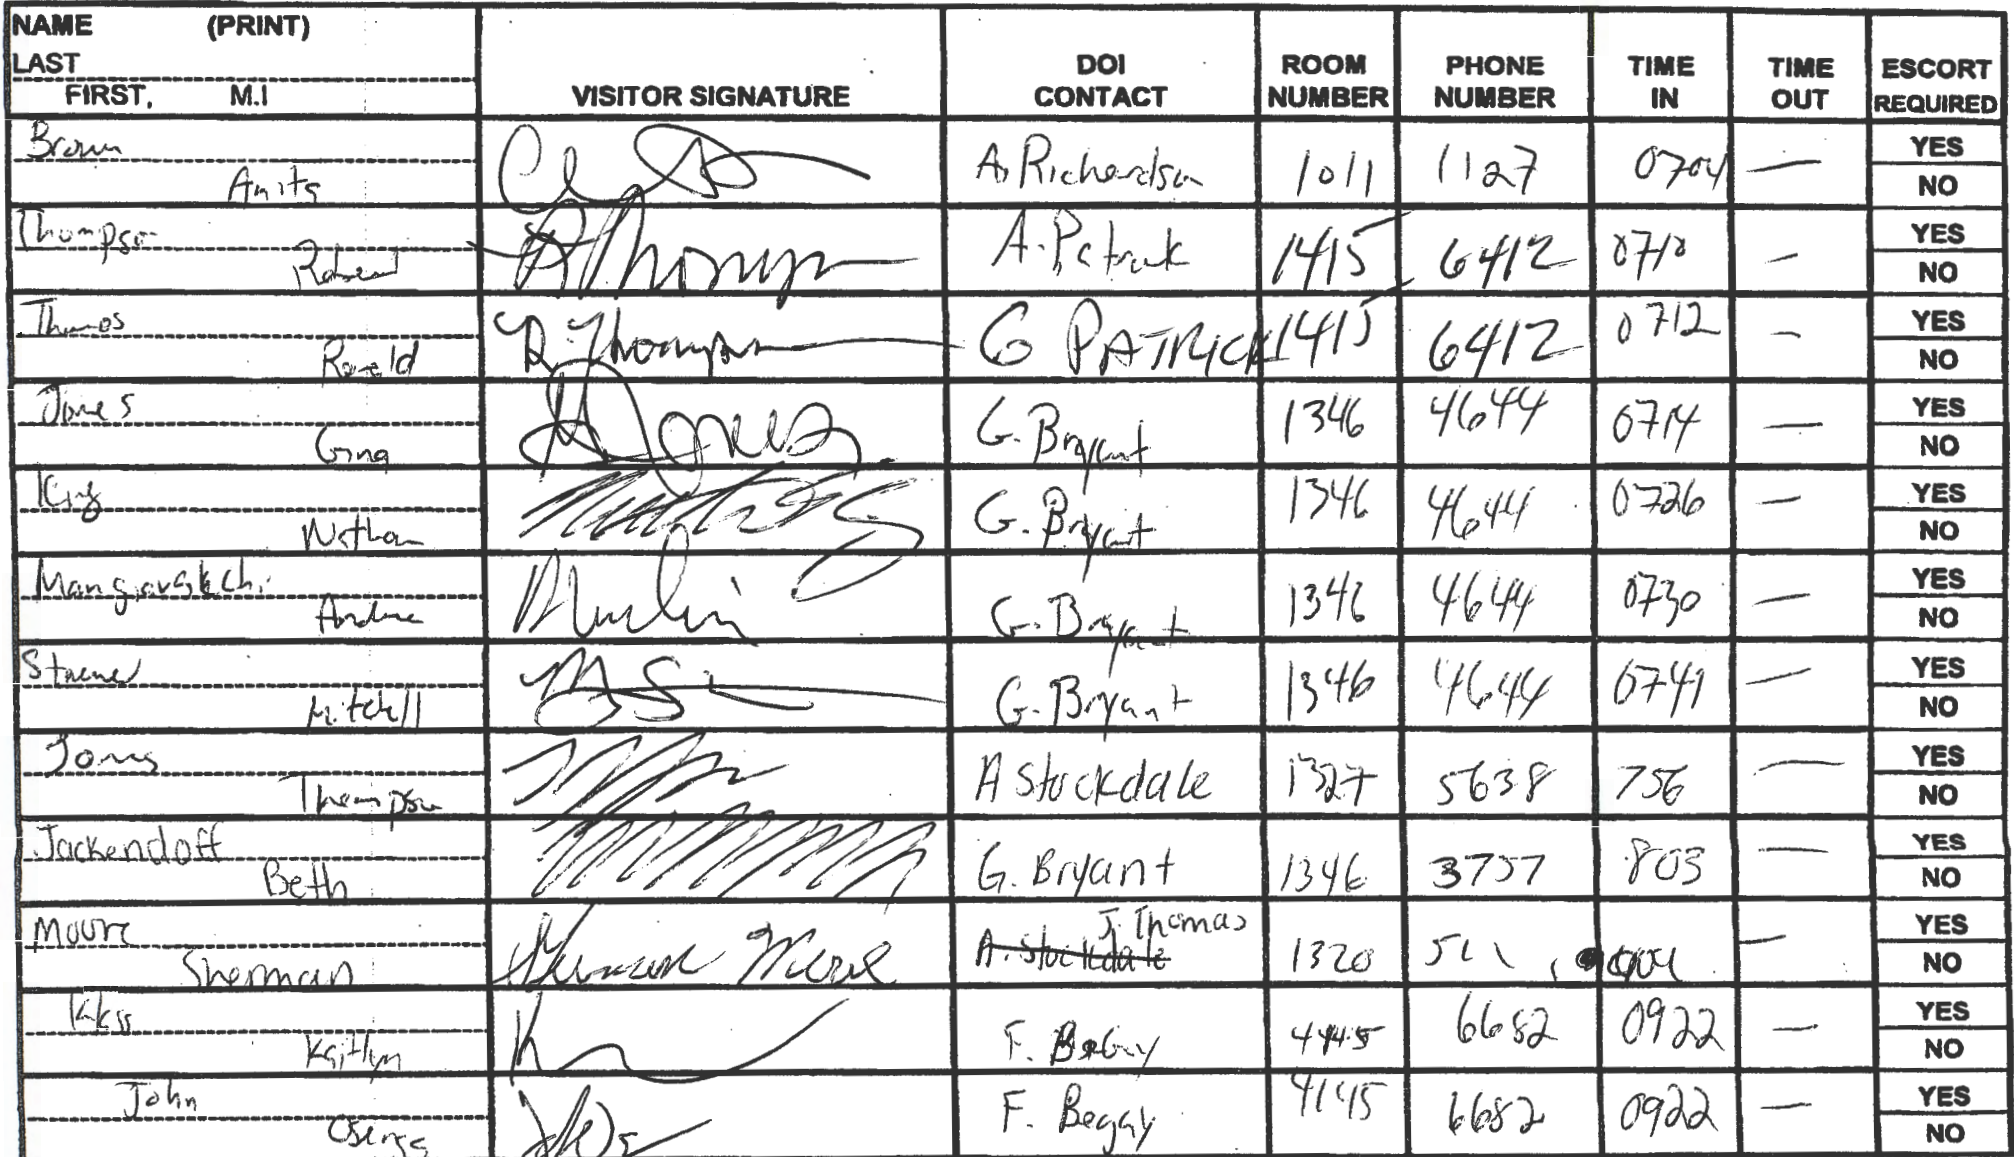 NAME (PRINT)
LAST
FIRST, M.I
VISITOR SIGNATURE
DOI CONTACT
ROOM NUMBER
PHONE NUMBER
TIME IN
TIME OUT
ESCORT REQUIRED
Brown
Anita
A. Richardson 1011 1127 0704 — YES NO
Thompson
Robert
RThompson
A. Patrick 1415 6412 0710 — YES NO
Thomas
Ronald
R. Thompson
G PATRICK 1415 6412 0712 — YES NO
Jones
Gina
G. Bryant 1346 4644 0714 — YES NO
King
Nathan
G. Bryant 1346 4644 0726 — YES NO
Andrew
G. Bryant 1346 4644 0730 — YES NO
Mitchell
G. Bryant 1346 4644 0741 — YES NO
Jones
Thompson
A Stockdale 1327 5638 756 — YES NO
Jackendoff
Beth
G. Bryant 1346 3757 803 — YES NO
Moore
Sherman
Sherman Moore
J. Thomas
A. Stockdale 1320 — YES NO
Kaitlyn
F. Begay 4145 6682 0922 — YES NO
John
F. Begay 4145 6682 0922 — YES NO